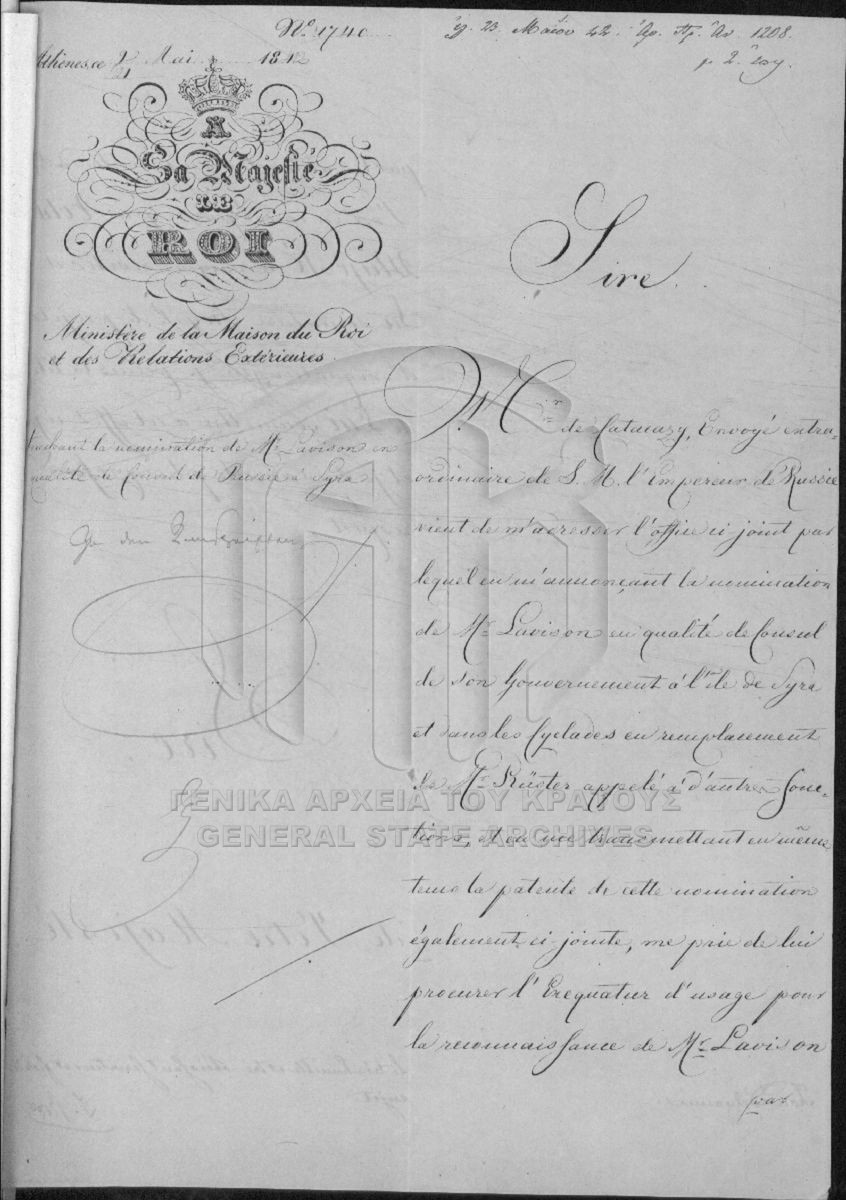 Nº 1740
ἐγ. 23 Μαΐου 42. Ἀρ. Πρ. Ἀν. 1208.
Athènes, ce 9/21 Mai 1842
A
Sa Majesté
LE
ROI
Sire
Ministère de la Maison du Roi
et des Relations Extérieures.
touchant la nomination de Mr. Lavison en
qualité de Consul de Russie à Syra
Mr. de Catacazy, Envoyé extra-
ordinaire de S. M. l'Empereur de Russie
vient de m'adresser l'office ci joint par
lequel en m'annonçant la nomination
de Mr. Lavison en qualité de Consul
de son Gouvernement à l'île de Syra
et dans les Cyclades en remplacement
de Mr. Rüster appelé à d'autres fonc-
tions, et en me transmettant en même
tems la patente de cette nomination
également ci-jointe, me prie de lui
procurer l'Exequatur d'usage pour
la reconnaissance de Mr. Lavison
par
ΓΕΝΙΚΑ ΑΡΧΕΙΑ ΤΟΥ ΚΡΑΤΟΥΣ
GENERAL STATE ARCHIVES